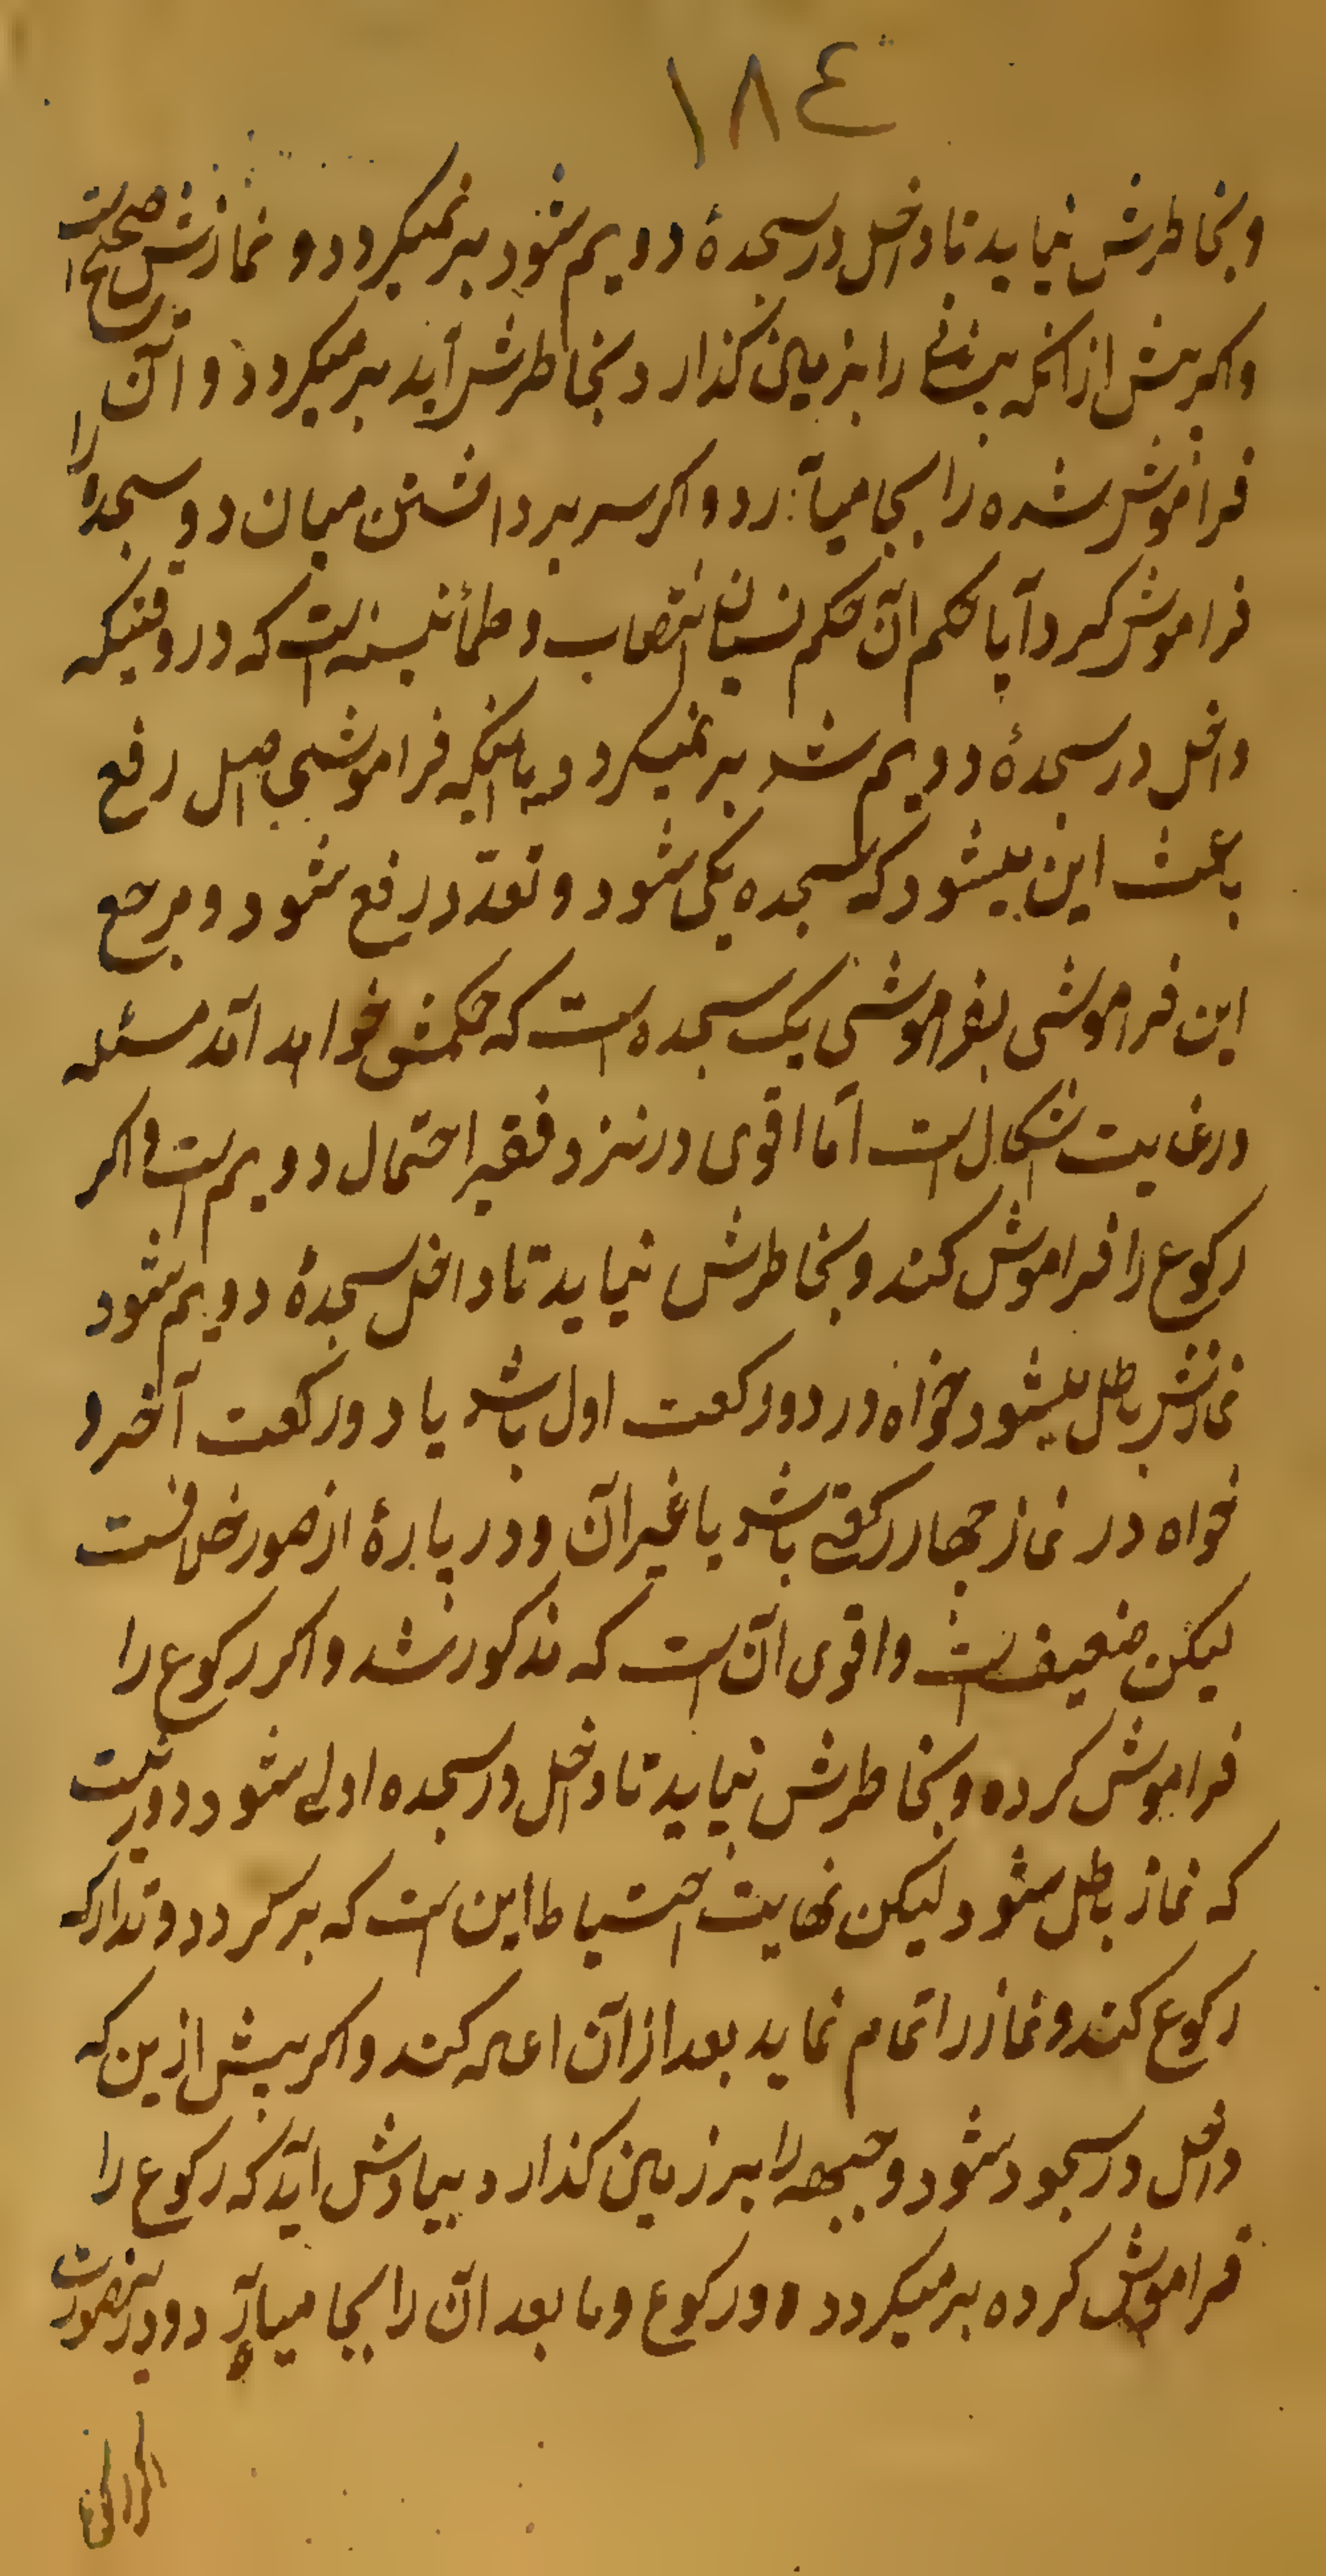 ١٨٤
وبخاطرش نیاید تا داخل در سجدهٔ دویم شود برنمیکردد و نمازش صحیح است
واکر پیش از انکه پیشانی را بر زمین کذارد بخاطرش آید برمیکردد و آن را
فراموش شده را بجا میآورد و اکر سر برداشتن میان دو سجده را
فراموش کرد آیا حکم آن حکم نسیان انتصاب و طمأنینه است که در وقتیکه
داخل در سجدهٔ دویم شد برنمیکردد یا اینکه فراموشی اصل رفع
باعث این میشود که سجده یکی شود و تعدّد رفع شود و مرجع
این فراموشی بفراموشی یک سجده است که حکمش خواهد آمد مسئله
در غایت اشکال است امّا اقوی در نزد فقیر احتمال دویم است و اکر
رکوع را فراموش کند و بخاطرش نیاید تا داخل سجدهٔ دویم شود
نمازش باطل میشود خواه در دو رکعت اول باشد یا دو رکعت آخر و
خواه در نماز چهار رکعتی باشد یا غیر آن و در پارهٔ از صور خلافست
لیکن ضعیف است و اقوی آن است که مذکور شد و اکر رکوع را
فراموش کرده و بخاطرش نیاید تا داخل در سجده اولی شود دور نیست
که نماز باطل شود لیکن نهایت احتیاط این است که برکردد و تدارک
رکوع کند و نماز را تمام نماید بعد از آن اعاده کند و اکر پیش از این که
داخل در سجود شود و جبهه را بر زمین کذارد بیادش آید که رکوع را
فراموش کرده برمیکردد و رکوع و ما بعد آن را بجا میآورد و در اینصورت